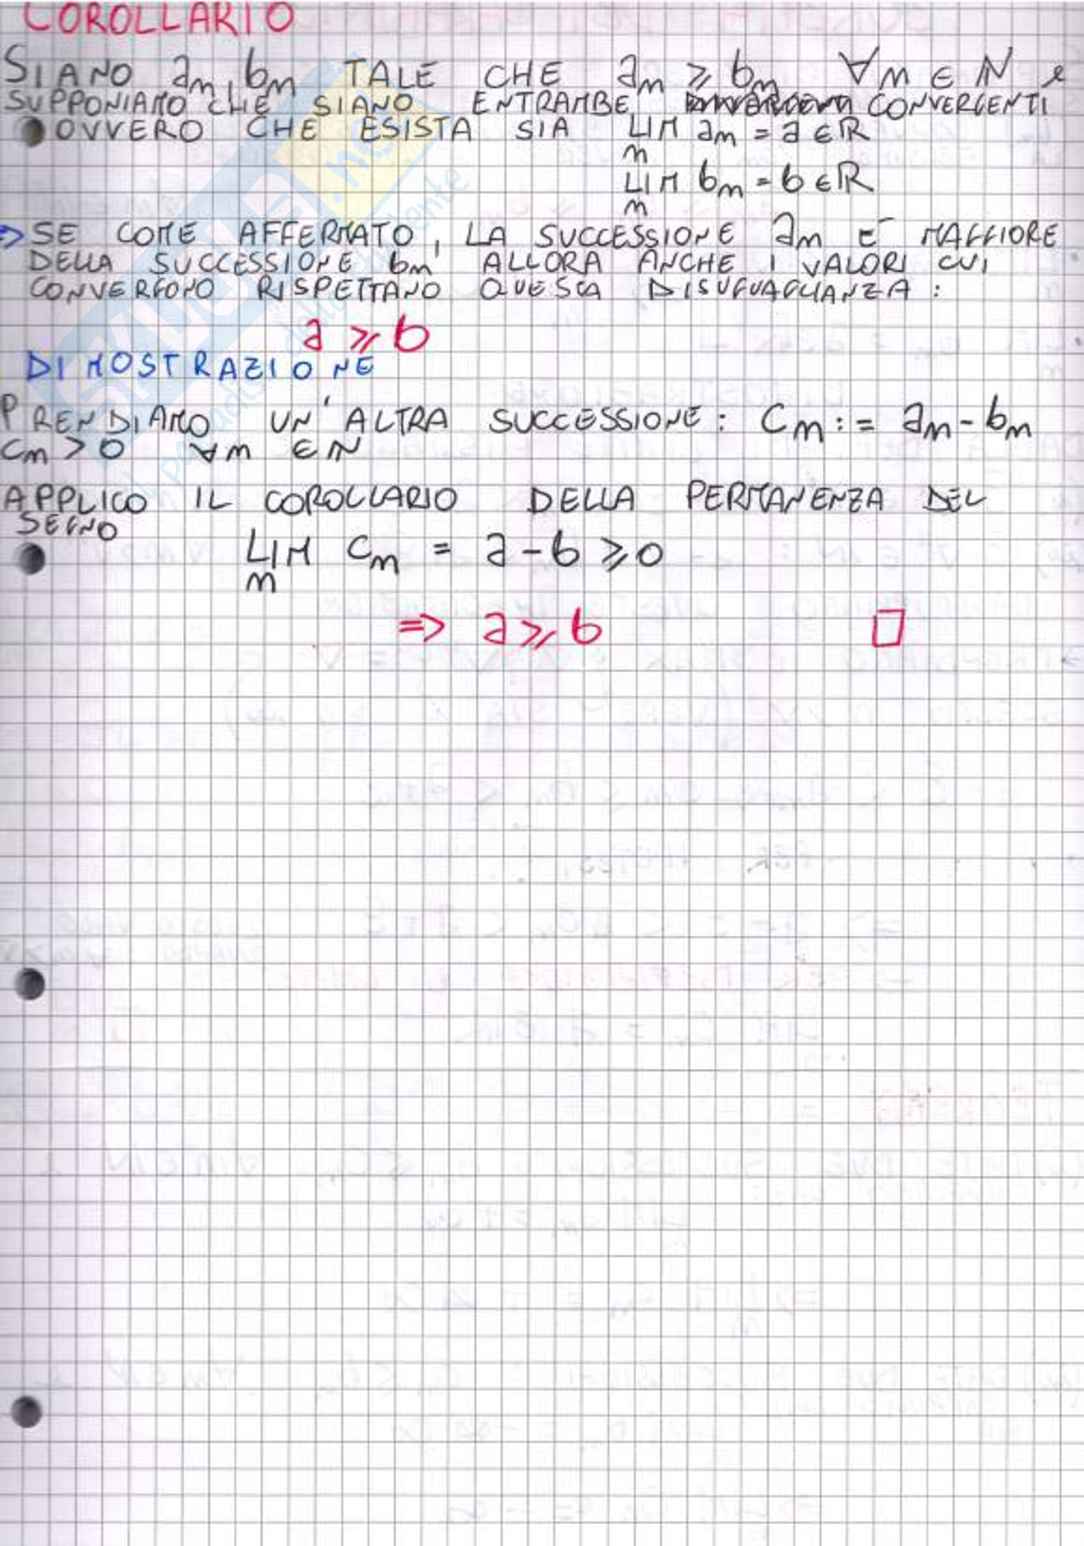 COROLLARIO
SIANO am, bm TALE CHE am ≥ bm ∀m ∈ N e
SUPPONIAMO CHE SIANO ENTRAMBE CONVERGENTI
OVVERO CHE ESISTA SIA LIM am = a ∈ R
m
LIM bm = b ∈ R
m
=> SE COME AFFERMATO, LA SUCCESSIONE am E' MAGGIORE
DELLA SUCCESSIONE bm ALLORA ANCHE I VALORI CUI
CONVERGONO RISPETTANO QUESTA DISUGUAGLIANZA:
a ≥ b
DIMOSTRAZIONE
PRENDIAMO UN'ALTRA SUCCESSIONE: Cm := am - bm
Cm > 0 ∀m ∈ N
APPLICO IL COROLLARIO DELLA PERMANENZA DEL
SEGNO
LIM Cm = a - b ≥ 0
m
=> a ≥ b □